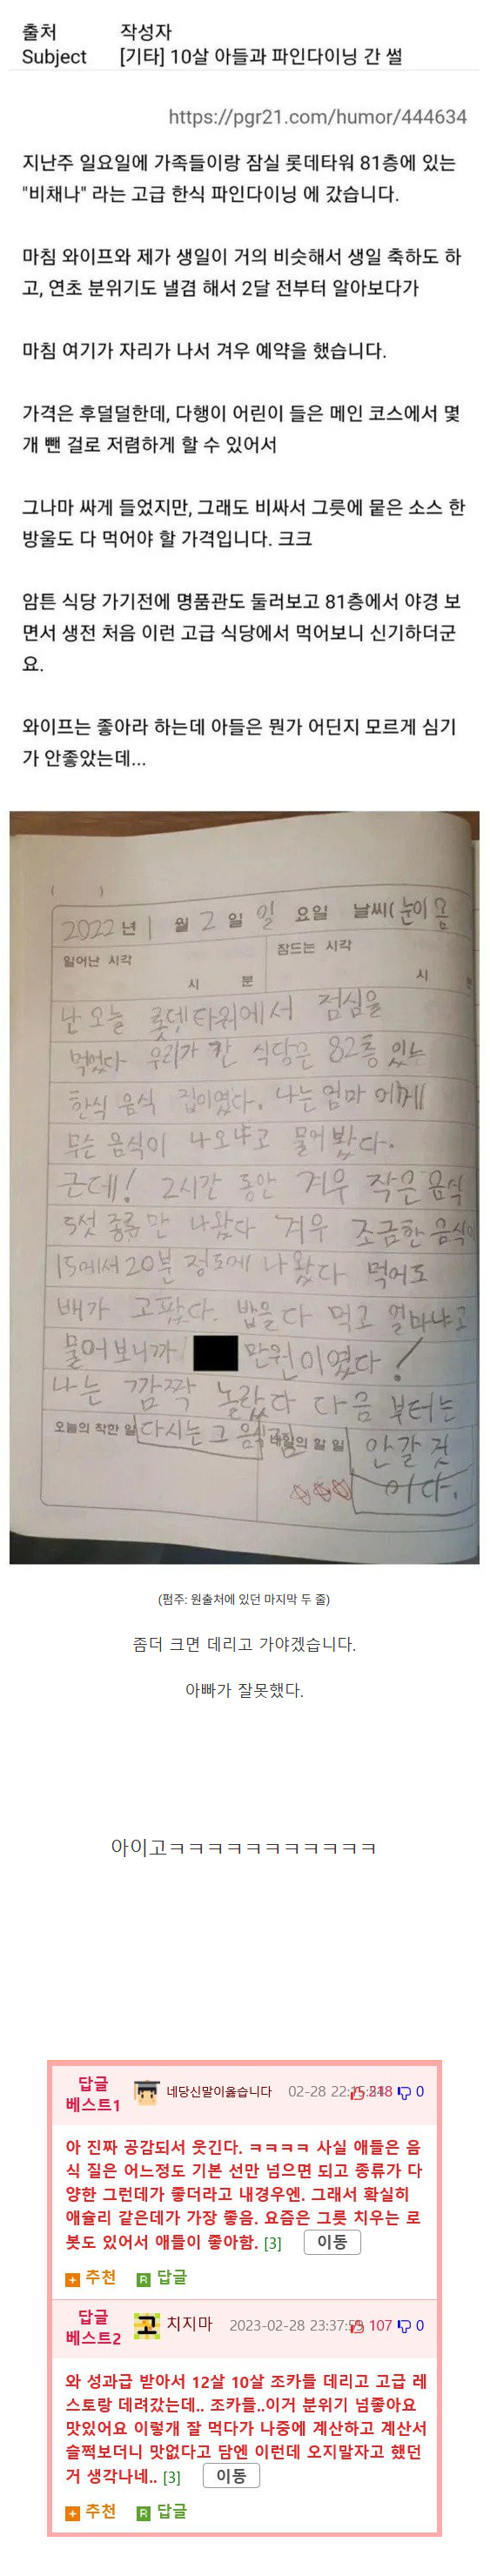 출처 작성자
Subject [기타] 10살 아들과 파인다이닝 간 썰
https://pgr21.com/humor/444634
지난주 일요일에 가족들이랑 잠실 롯데타워 81층에 있는
"비채나" 라는 고급 한식 파인다이닝 에 갔습니다.
마침 와이프와 제가 생일이 거의 비슷해서 생일 축하도 하
고, 연초 분위기도 낼겸 해서 2달 전부터 알아보다가
마침 여기가 자리가 나서 겨우 예약을 했습니다.
가격은 후덜덜한데, 다행이 어린이 들은 메인 코스에서 몇
개 뺀 걸로 저렴하게 할 수 있어서
그나마 싸게 들었지만, 그래도 비싸서 그릇에 뭍은 소스 한
방울도 다 먹어야 할 가격입니다. 크크
암튼 식당 가기전에 명품관도 둘러보고 81층에서 야경 보
면서 생전 처음 이런 고급 식당에서 먹어보니 신기하더군
요.
와이프는 좋아라 하는데 아들은 뭔가 어딘지 모르게 심기
가 안좋았는데...
( )
2022 년 1 월 2 일 일 요일 날씨( 눈이 옴
일어난 시각 시 분 잠드는 시각 시
난 오늘 롯데타워에서 점심을
먹었다 우리가 간 식당은 82층 있는
한식 음식 집이였다. 나는 엄마 에게
무슨 음식이 나오냐고 물어 봤다.
근데! 2시간 동안 겨우 작은 음식
5섯 종류만 나왔다 겨우 조금한 음식이
15에서 20분 정도에 나왔다 먹어도
배가 고팠다. 밥을 다 먹고 얼마냐고
물어보니까 만원이였다!
나는 깜짝 놀랐다 다음 부터는
오늘의 착한 일 다시는 그 음식 내일의 할 일 안 갈 것
이다.
(펌주: 원출처에 있던 마지막 두 줄)
좀더 크면 데리고 가야겠습니다.
아빠가 잘못했다.
아이고ㅋㅋㅋㅋㅋㅋㅋㅋㅋㅋㅋ
답글
베스트1 네당신말이옳습니다 02-28 248 0
아 진짜 공감되서 웃긴다. ㅋㅋㅋㅋ 사실 애들은 음
식 질은 어느정도 기본 선만 넘으면 되고 종류가 다
양한 그런데가 좋더라고 내경우엔. 그래서 확실히
애슐리 같은데가 가장 좋음. 요즘은 그릇 치우는 로
봇도 있어서 애들이 좋아함. [3] 이동
+ 추천 R 답글
답글
베스트2 고 치지마 2023-02-28 23:37:59 107 0
와 성과급 받아서 12살 10살 조카들 데리고 고급 레
스토랑 데려갔는데.. 조카들..이거 분위기 넘좋아요
맛있어요 이렇개 잘 먹다가 나중에 계산하고 계산서
슬쩍보더니 맛없다고 담엔 이런데 오지말자고 했던
거 생각나네.. [3] 이동
+ 추천 R 답글